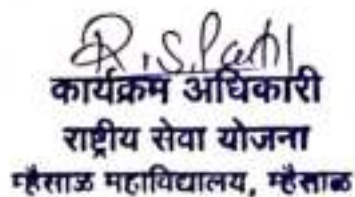 R.S.Patil
कार्यक्रम अधिकारी
राष्ट्रीय सेवा योजना
म्हैसाळ महाविद्यालय, म्हैसाळ